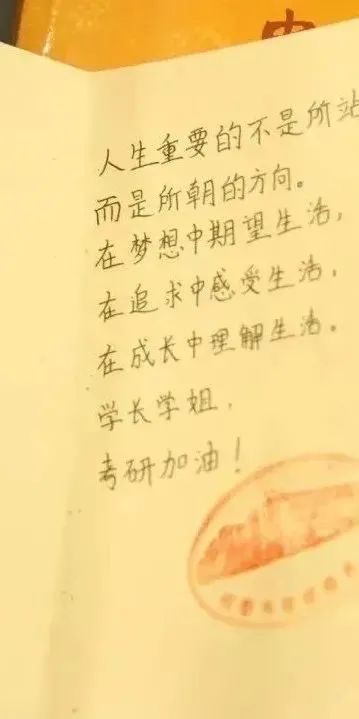 人生重要的不是所站
而是所朝的方向。
在梦想中期望生活,
在追求中感受生活,
在成长中理解生活。
学长学姐,
考研加油!